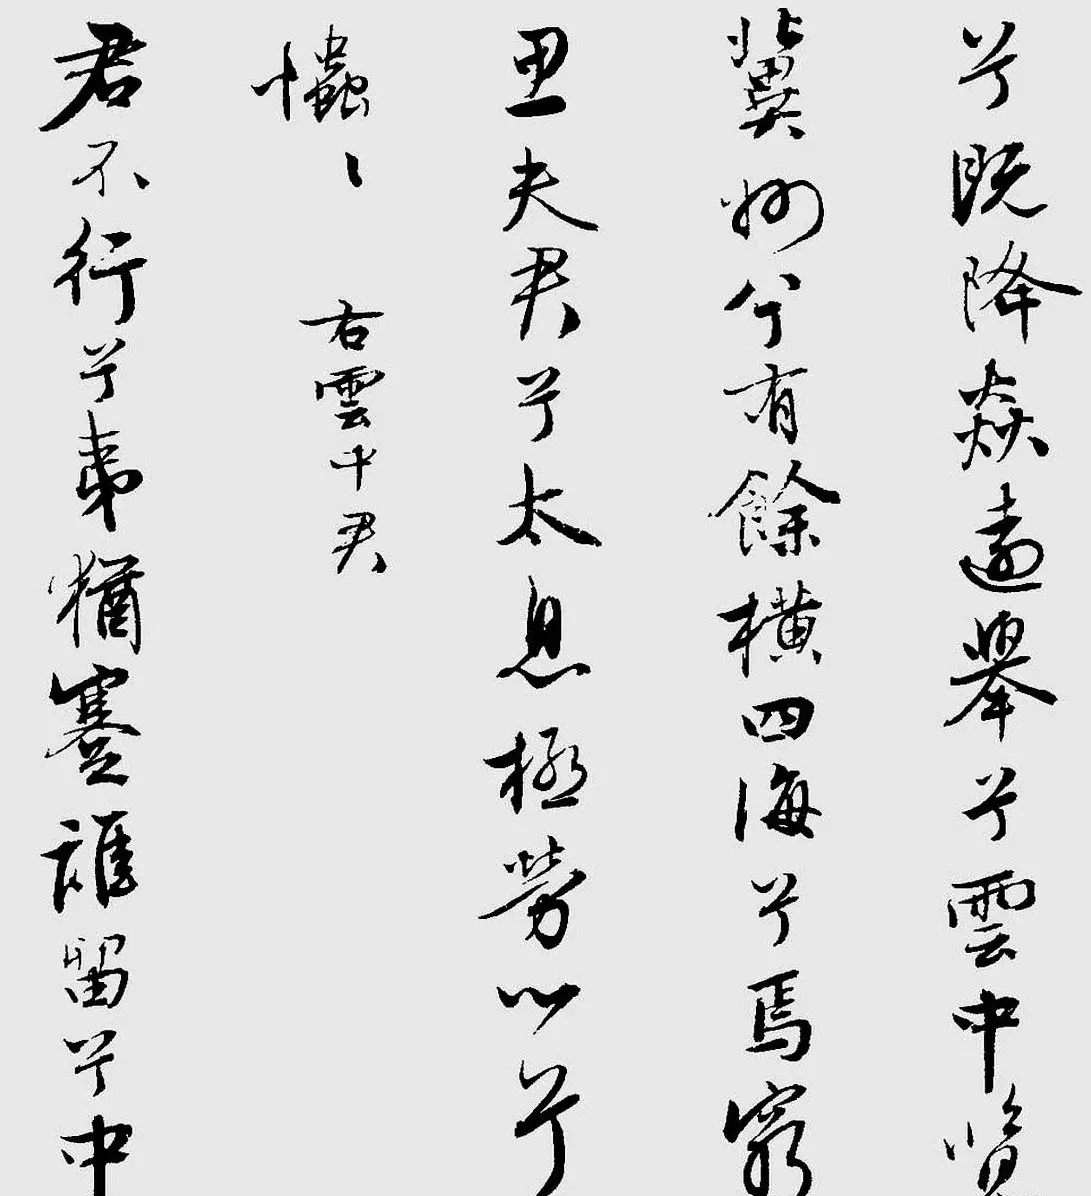 兮既降焱遠舉兮雲中覽
冀州兮有餘橫四海兮焉窮
思夫君兮太息極勞心兮
𢥞〻 右雲中君
君不行兮夷猶蹇誰留兮中